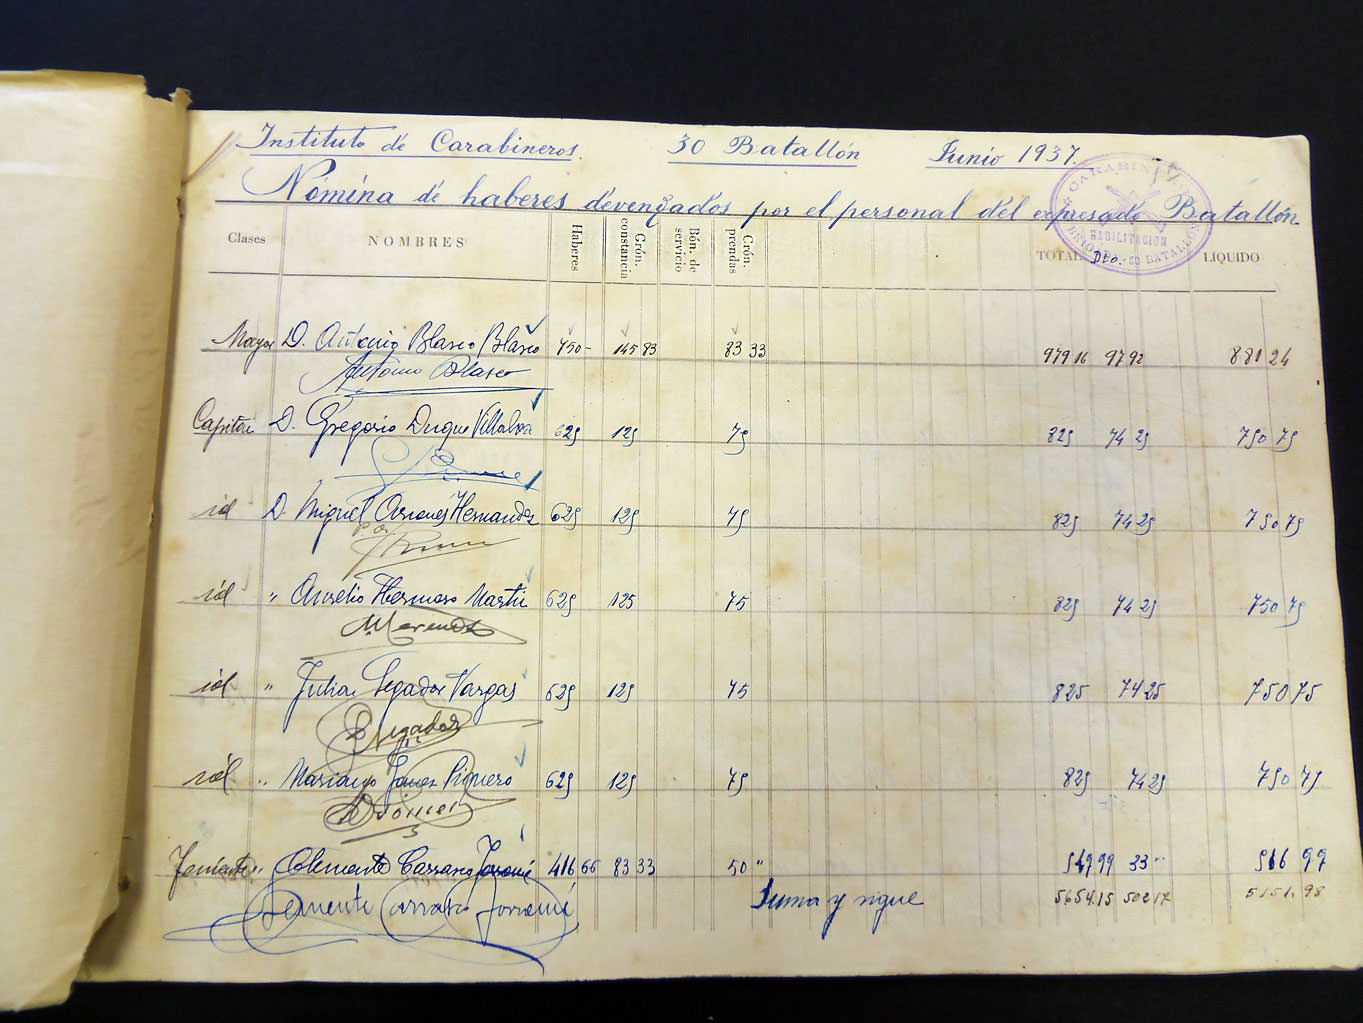 Instituto de Carabineros. 30 Batallón Junio 1937.
Nómina de haberes devengados por el personal del expresado Batallón
CARABIN
HABILITACION
BRIG 30 BATALLON
Clases NOMBRES Haberes Grón. constancia Bón. de servicio Grón. prendas TOTAL Dto. LIQUIDO
Mayor D. Antonio Blasco Blasco 750- 145 83 83 33 979 16 97 92 881 24
Antonio Blasco
Capitán D. Gregorio Duque Villalba 625 125 75 825 74 25 750 75
id D. Miguel Hernandez 625 125 75 825 74 25 750 75
P.O.
id " Aurelio Hermoso Martin 625 125 75 825 74 25 750 75
id " Julian Segador Vargas 625 125 75 825 74 25 750 75
Segador
id " Mariano Piquero 625 125 75 825 74 25 750 75
Teniente " Clemente Carrasco 416 66 83 33 50 " 549 99 33 " 516 99
Clemente Carrasco
Suma y sigue 5654.15 502 17 5151.98